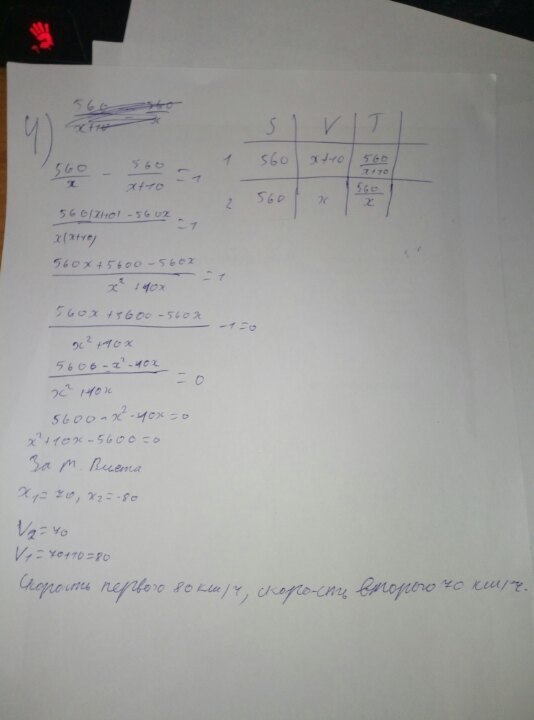 4)
S V T
1 560 x+10 560/(x+10)
2 560 x 560/x
560/x - 560/(x+10) = 1
(560(x+10) - 560x)/(x(x+10)) = 1
(560x+5600-560x)/(x²+10x) = 1
(560x+5600-560x)/(x²+10x) - 1 = 0
(5600-x²-10x)/(x²+10x) = 0
5600-x²-10x=0
x²+10x-5600=0
За т. Виета
x₁=70, x₂=-80
V₂=70
V₁=70+10=80
Скорость первого 80 км/ч, скорость второго 70 км/ч.